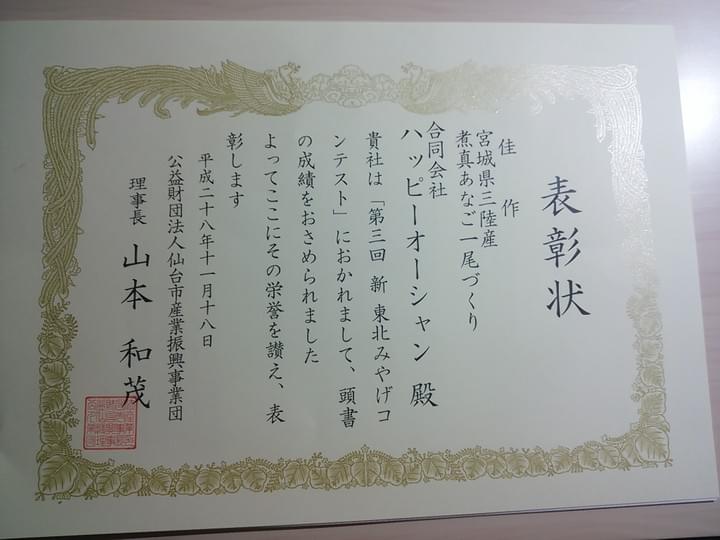 表彰状
佳作
宮城県三陸産
煮真あなご一尾づくり
合同会社
ハッピーオーシャン 殿
貴社は「第三回 新 東北みやげコ
ンテスト」におかれまして、頭書
の成績をおさめられました
よってここにその栄誉を讃え、表
彰します
平成二十八年十一月十八日
公益財団法人仙台市産業振興事業団
理事長 山本 和茂